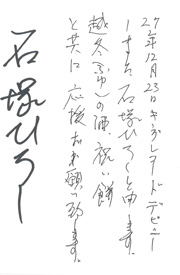 27年12月23日キングレコードデビュー
します石塚ひろしと申します。
越冬ふゆの陣、祝い餅
と共に応援お願い致します。
石塚ひろし